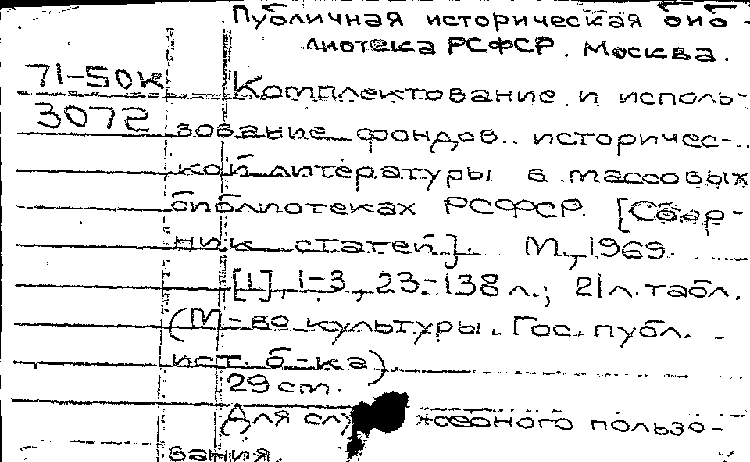 Публичная историческая биб-
лиотека РСФСР. Москва.
71-50к
Комплектование и исполь-
3072
зование фондов историчес-
кой литературы в массовых
библиотеках РСФСР. [Сбор-
ник статей]. М., 1969.
[1], 1-3, 23-138 л.; 21 л. табл.
(М-во культуры. Гос. публ.
ист. б-ка)
29 cm.
Для пользо-
вания.